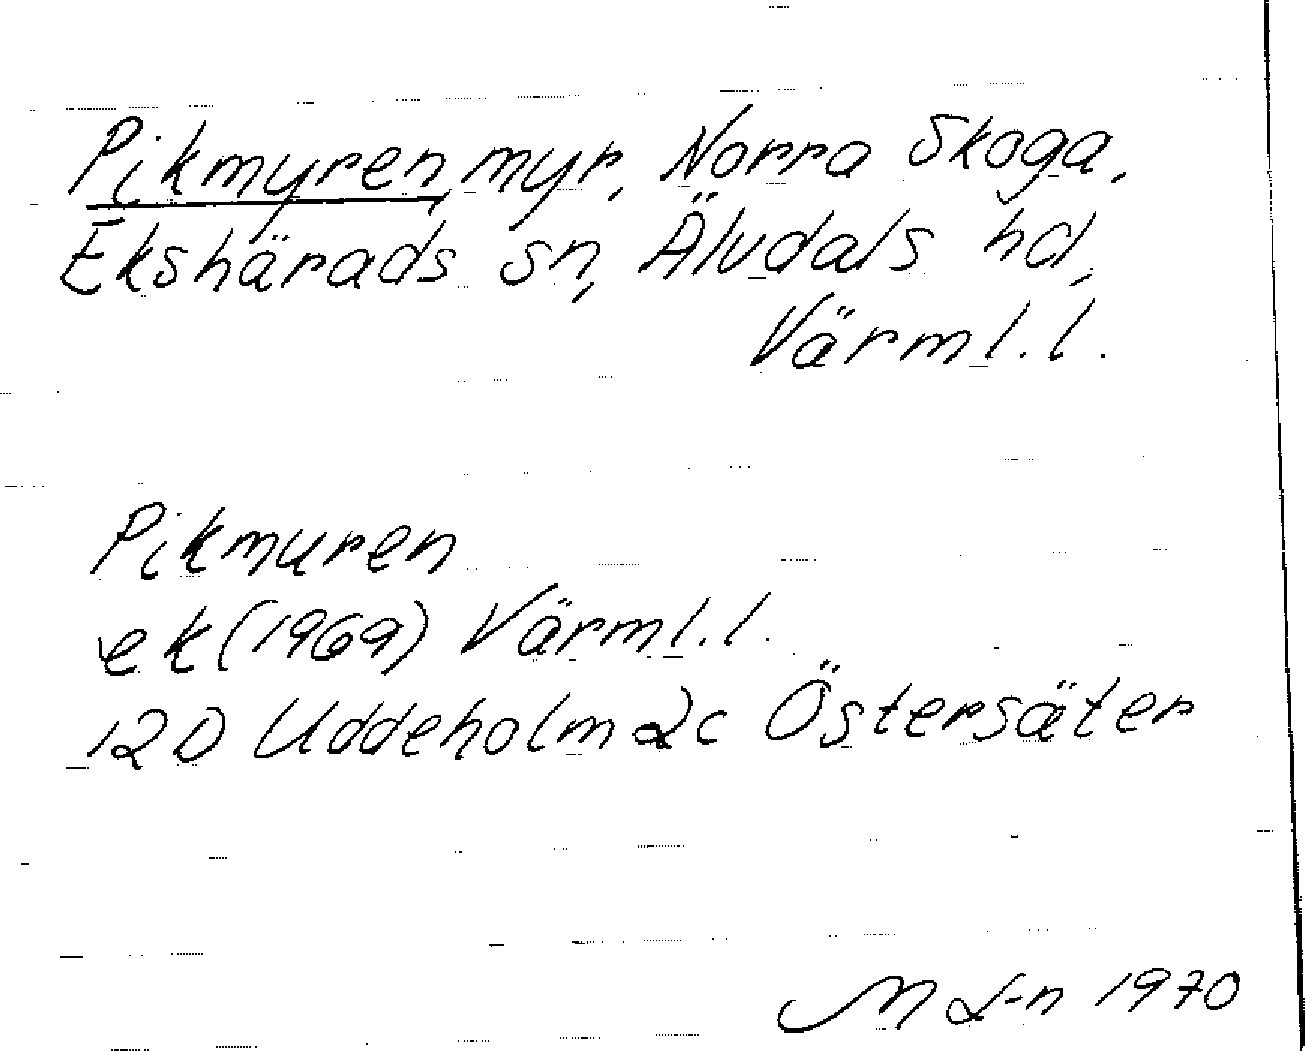 Pikmyren, myr, Norra Skoga,
Ekshärads sn, Älvdals hd,
Värml.l.
Pikmuren
ek (1969) Värml.l.
12D Uddeholm 2c Östersäter
M L-n 1970